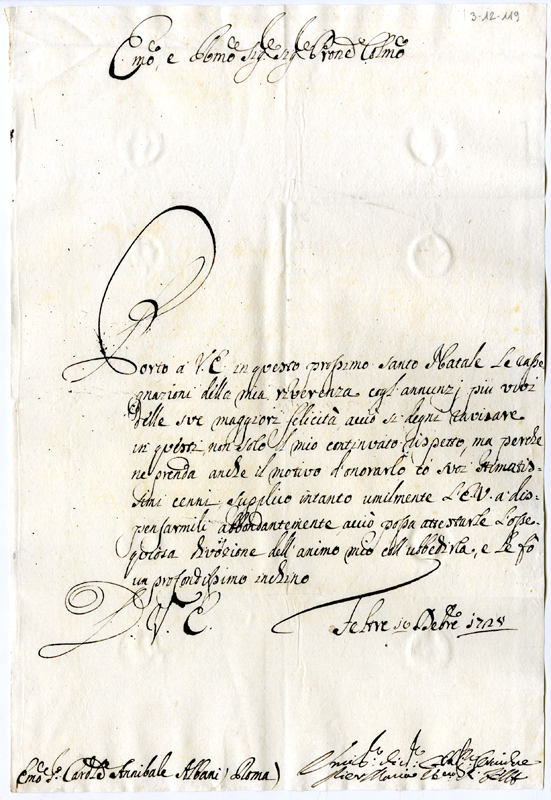 3-12-119
Emo, e Rmo Sigr, Sigr Prone Colmo
Porto a V.E. in questo prossimo santo Natale le rasse
gnazioni della mia riverenza cogl'annunzj più vivi
delle sue maggiori felicità acciò si degni ravisare
in questi non solo il mio continuato rispetto, ma perche
ne prenda anche il motivo d'onorarlo co suoi stimatis-
simi cenni, suplico intanto umilmente L'E.V. a dis-
pensarmili abbondantemente acciò possa attestarle l'osse-
quiosa divozione dell'animo mio coll'ubbedirla, e le fò
un profondissimo inchino
D. V. E.
Febre 10 Xbre 1728
Emo Sr Cardle Annibale Albani (Roma)